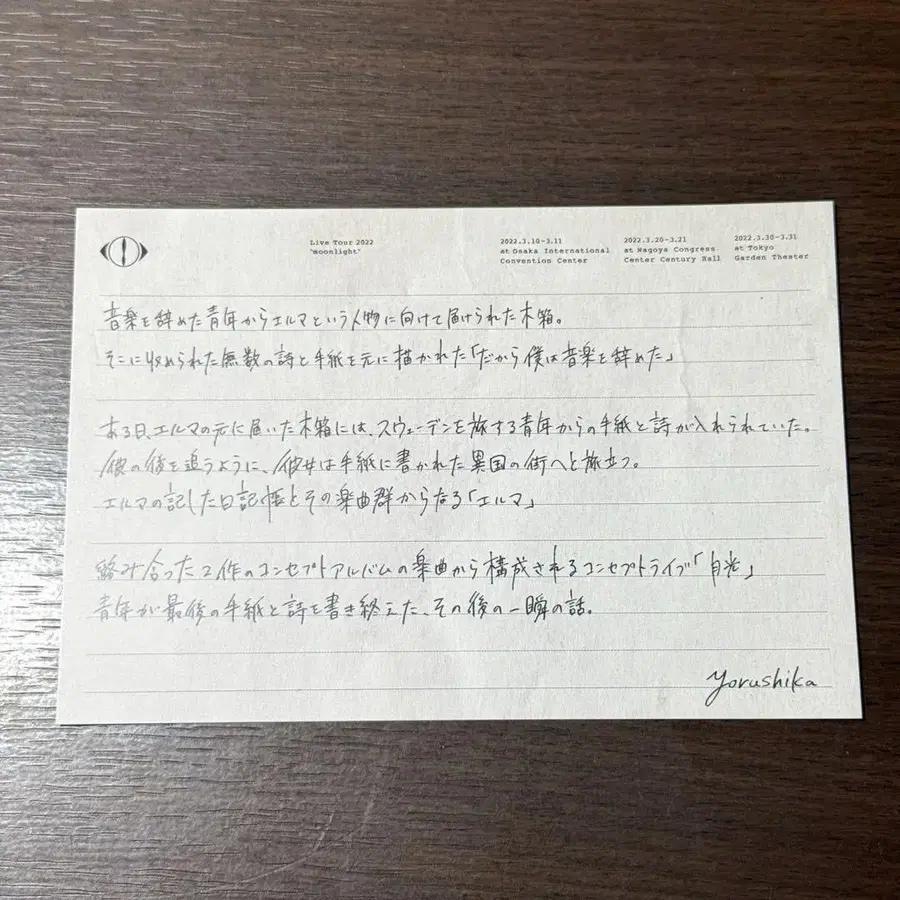 Live Tour 2022
"moonlight"
2022.3.10-3.11
at Osaka International
Convention Center
2022.3.20-3.21
at Nagoya Congress
Center Century Hall
2022.3.30-3.31
at Tokyo
Garden Theater
音楽を辞めた青年からエルマという人物に向けて届けられた木箱。
そこに収められた無数の詩と手紙を元に描かれた「だから僕は音楽を辞めた」
ある日、エルマの元に届いた木箱には、スウェーデンを旅する青年からの手紙と詩が入れられていた。
彼の後を追うように、彼女は手紙に書かれた異国の街へと旅立つ。
エルマの記した日記帳とその楽曲群からなる「エルマ」
絡み合った2作のコンセプトアルバムの楽曲から構成されるコンセプトライブ「月光」
青年が最後の手紙と詩を書き終えた、その後の一瞬の話。
Yorushika